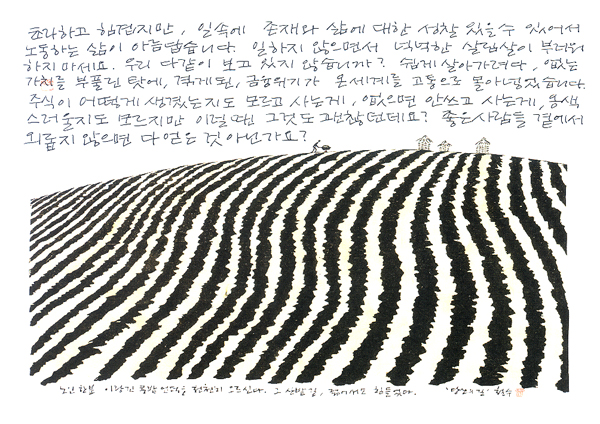 초라하고 힘겹지만, 일속에 존재와 삶에 대한 성찰 있을수 있어서
노동하는 삶이 아름답습니다. 일하지 않으면서 넉넉한 살림살이 부러워
하지 마세요. 우리 다같이 보고 있지 않습니까? 쉽게 살아가려다, 없는
가치를 부풀린 탓에, 겪게된, 금융위기가 온세계를 고통으로 몰아넣었습니다.
주식이 어떻게 생겼는지도 모르고 사는게, 없으면 안쓰고 사는게, 옹색
스러울지도 모르지만 이럴땐 그것도 괜찮던데요? 좋은사람들 곁에서
외롭지 않으면 다 얻은 것 아닌가요?
노인 한분 이랑진 묵밭 언덕을 천천히 오르신다. 그 산밭길, 젊어서도 힘들었다.
철수